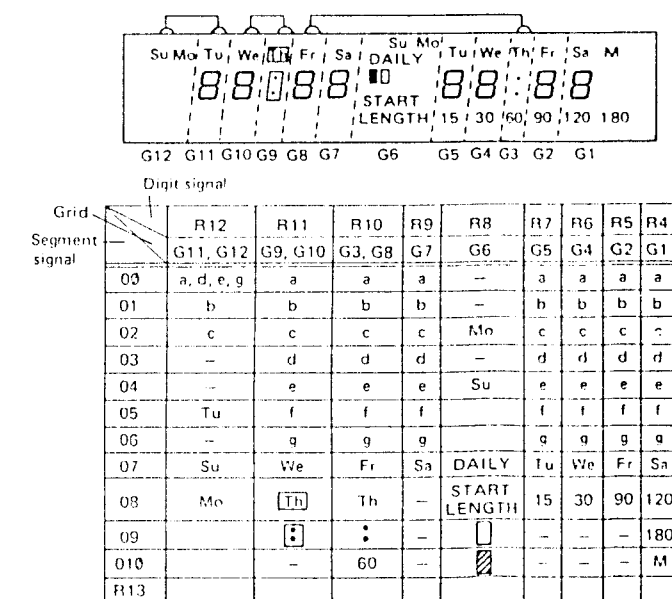 Su Mo Tu We Th Fr Sa Su Mo Tu We Th Fr Sa M
DAILY
88:88 88:88
START
LENGTH 15 30 60 90 120 180
G12 G11 G10 G9 G8 G7 G6 G5 G4 G3 G2 G1
Digit signal
Grid
Segment signal
R12 R11 R10 R9 R8 R7 R6 R5 R4
G11, G12 G9, G10 G3, G8 G7 G6 G5 G4 G2 G1
00 a, d, e, g a a a – a a a a
01 b b b b – b b b b
02 c c c c Mo c c c c
03 – d d d – d d d d
04 – e e e Su e e e e
05 Tu f f f f f f f
06 – g g g g g g g
07 Su We Fr Sa DAILY Tu We Fr Sa
08 Mo Th Th – START LENGTH 15 30 90 120
09 : : – – – – 180
010 – 60 – – – – M
R13